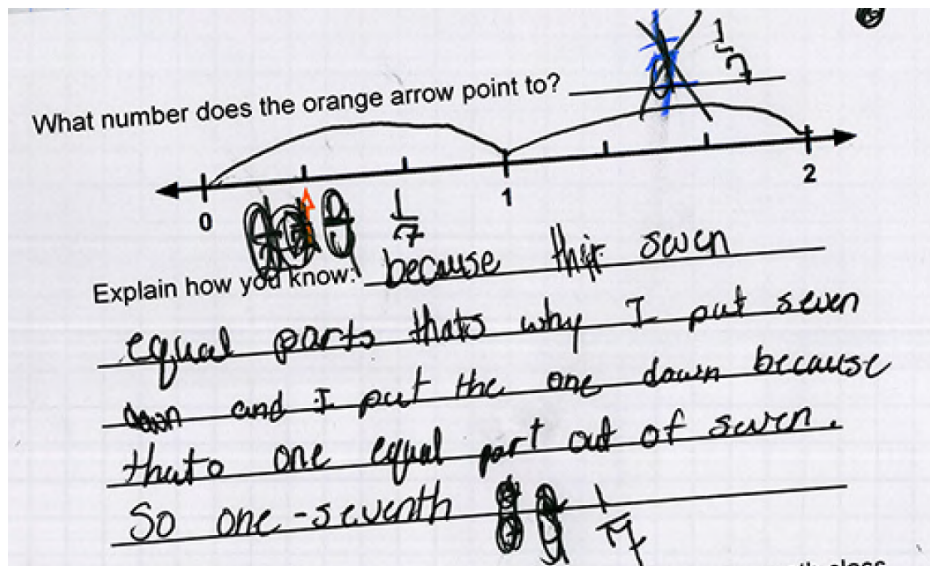 1/7
What number does the orange arrow point to?
0 1 2
1/7
Explain how you know: because thir seven
equal parts thats why I put seven
down and I put the one down because
thats one equal part out of seven.
So one-seventh 1/7